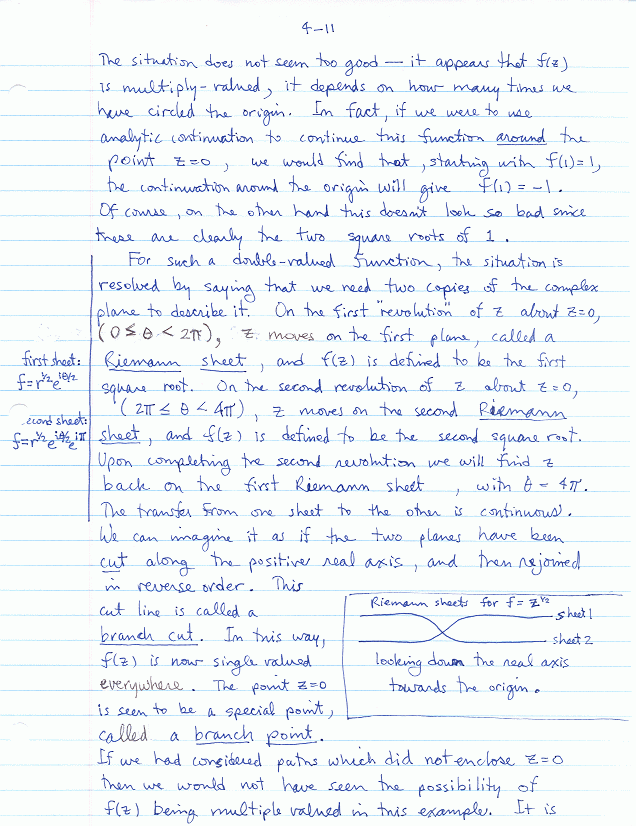 4-11
The situation does not seem too good — it appears that f(z)
is multiply-valued, it depends on how many times we
have circled the origin. In fact, if we were to use
analytic continuation to continue this function around the
point z=0, we would find that, starting with f(1)=1,
the continuation around the origin will give f(1)=-1.
Of course, on the other hand this doesn't look so bad since
these are clearly the two square roots of 1.
For such a double-valued function, the situation is
resolved by saying that we need two copies of the complex
plane to describe it. On the first "revolution" of z about z=0,
(0 ≤ θ < 2π), z moves on the first plane, called a
first sheet:
f=r^1/2 e^iθ/2
Riemann sheet, and f(z) is defined to be the first
square root. On the second revolution of z about z=0,
(2π ≤ θ < 4π), z moves on the second Riemann
second sheet:
f=r^1/2 e^iθ/2 e^iπ
sheet, and f(z) is defined to be the second square root.
Upon completing the second revolution we will find z
back on the first Riemann sheet, with θ = 4π.
The transfer from one sheet to the other is continuous.
We can imagine it as if the two planes have been
cut along the positive real axis, and then rejoined
in reverse order. This
cut line is called a
branch cut. In this way,
f(z) is now single valued
everywhere. The point z=0
is seen to be a special point,
called a branch point.
Riemann sheets for f = z^1/2
sheet 1
sheet 2
looking down the real axis
towards the origin.
If we had considered paths which did not enclose z=0
then we would not have seen the possibility of
f(z) being multiple valued in this example. It is